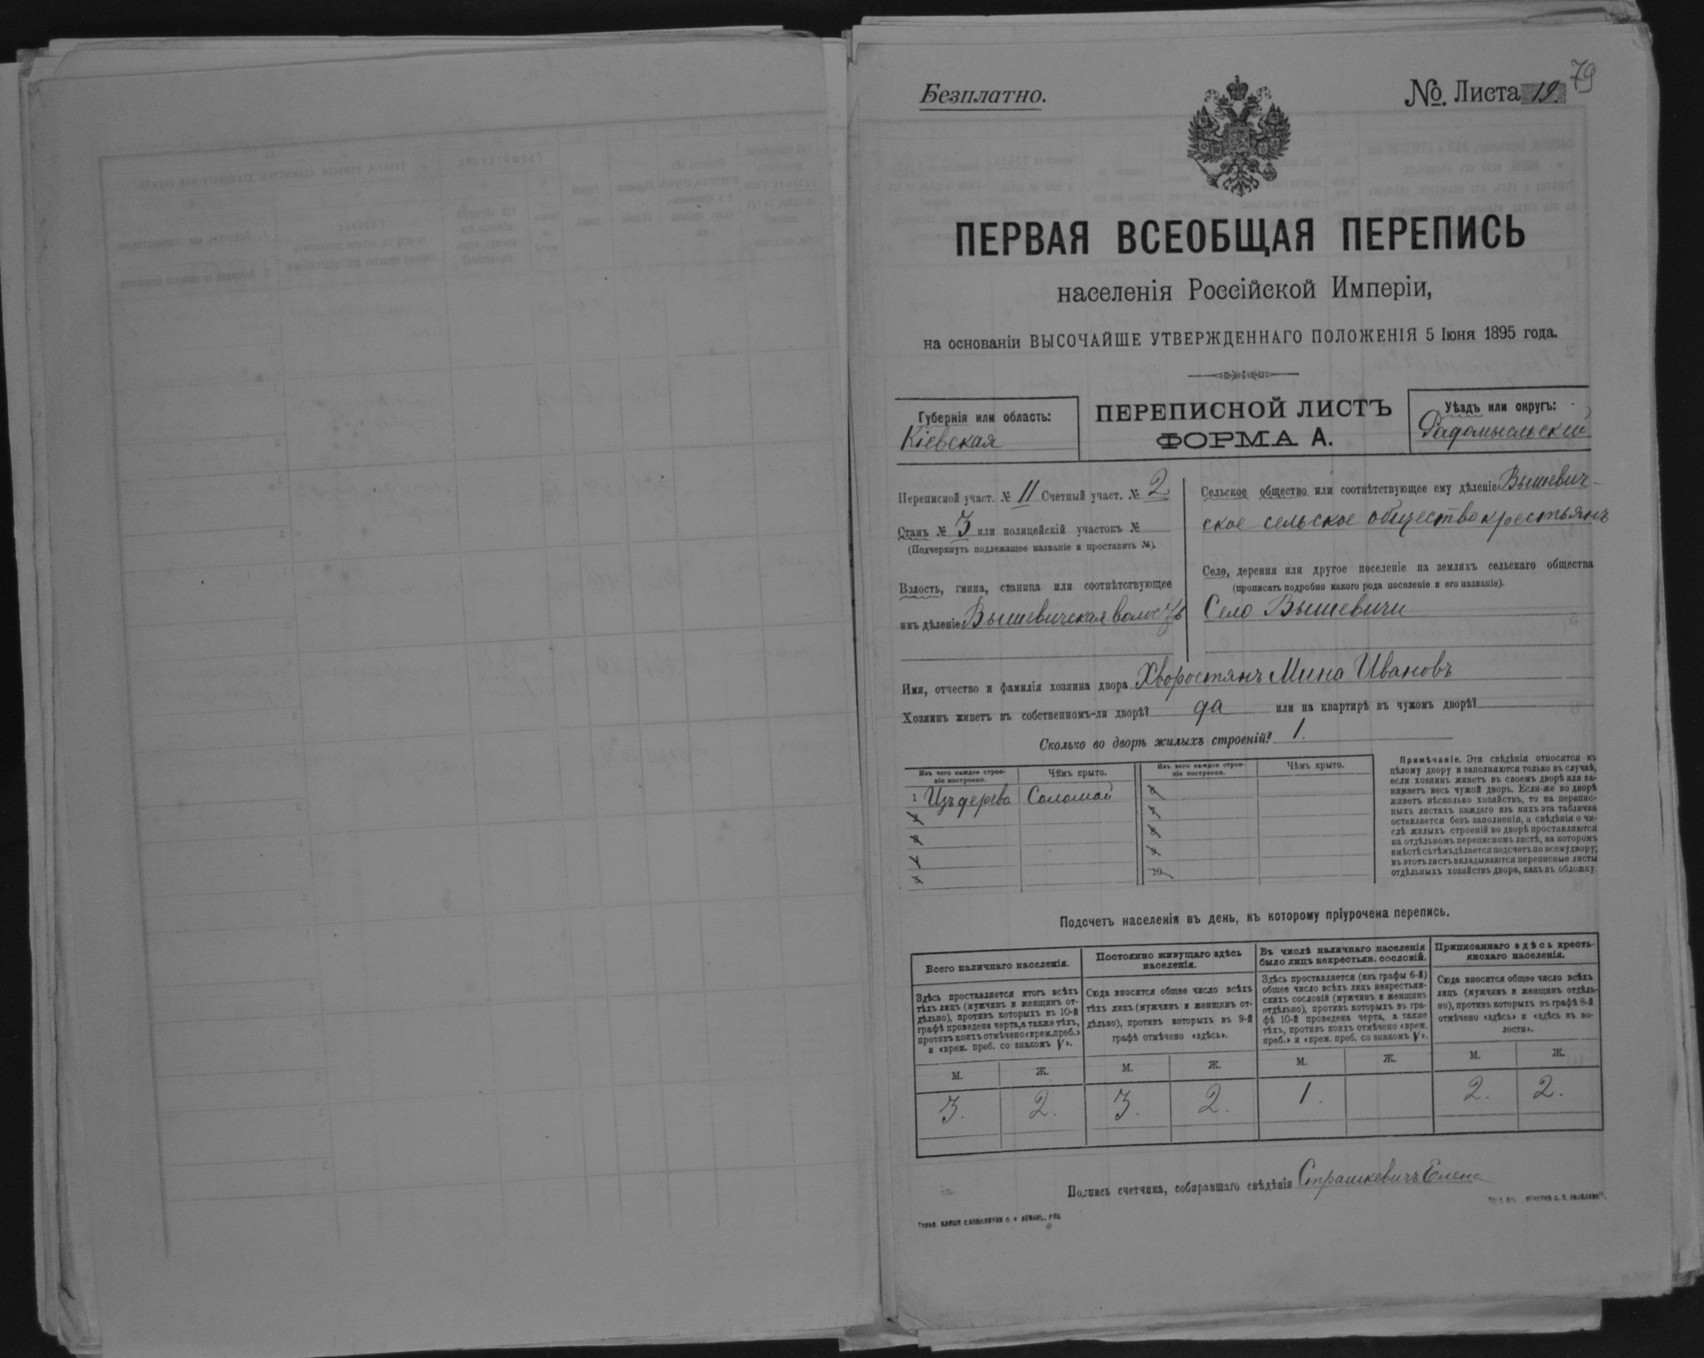 79
Безплатно.
№ Листа 19.
ПЕРВАЯ ВСЕОБЩАЯ ПЕРЕПИСЬ
населенія Россійской Имперіи,
на основаніи ВЫСОЧАЙШЕ УТВЕРЖДЕННАГО ПОЛОЖЕНІЯ 5 Іюня 1895 года.
Губернія или область:
Кіевская
ПЕРЕПИСНОЙ ЛИСТЪ
ФОРМА А.
Уѣздъ или округъ:
Радомысльскій
Переписной участ. № 11 Счетный участ. № 2
Станъ № 3 или полицейскій участокъ №
(Подчеркнуть подлежащее названіе и проставить №).
Волость, гмина, станица или соотвѣтствующее
имъ дѣленіе Вышевичская волость
Сельское общество или соотвѣтствующее ему дѣленіе Вышевич-
ское сельское общество крестьянъ
Село, деревня или другое поселеніе на земляхъ сельскаго общества
(прописать подробно какого рода поселеніе и его названіе).
Село Вышевичи
Имя, отчество и фамилія хозяина двора Хворостянъ Мина Ивановъ
Хозяинъ живетъ въ собственномъ-ли дворѣ? да или на квартирѣ въ чужомъ дворѣ?
Сколько во дворѣ жилыхъ строеній? 1.
Изъ чего каждое строе-
ніе построено.
Чѣмъ крыто.
Изъ чего каждое строе-
ніе построено.
Чѣмъ крыто.
1 Изъ дерева Соломой
10
Примѣчаніе. Эти свѣдѣнія относятся къ
цѣлому двору и заполняются только въ случаѣ,
если хозяинъ живетъ въ своемъ дворѣ или за-
нимаетъ весь чужой дворъ. Если-же во дворѣ
живетъ нѣсколько хозяйствъ, то на перепис-
ныхъ листахъ каждаго изъ нихъ эта табличка
оставляется безъ заполненія, а свѣдѣнія о чи-
слѣ жилыхъ строеній во дворѣ проставляются
на отдѣльномъ переписномъ листѣ, на которомъ
вмѣстѣ съ тѣмъ дѣлается подсчетъ по всему двору;
въ этотъ листъ вкладываются переписные листы
отдѣльныхъ хозяйствъ двора, какъ въ обложку.
Подсчетъ населенія въ день, къ которому пріурочена перепись.
Всего наличнаго населенія.
Здѣсь проставляется итогъ всѣхъ
тѣхъ лицъ (мужчинъ и женщинъ от-
дѣльно), противъ которыхъ въ 10-й
графѣ проведена черта, а также тѣхъ,
противъ коихъ отмѣчено «врем. преб.»
и «врем. преб. со знакомъ V».
М. Ж.
3. 2.
Постоянно живущаго здѣсь
населенія.
Сюда вносится общее число всѣхъ
тѣхъ лицъ (мужчинъ и женщинъ от-
дѣльно), противъ которыхъ въ 9-й
графѣ отмѣчено «здѣсь».
М. Ж.
3. 2.
Въ числѣ наличнаго населенія
было лицъ некрестьян. сословій.
Здѣсь проставляется (изъ графы 6-й)
общее число всѣхъ лицъ некрестьян-
скихъ сословій (мужчинъ и женщинъ
отдѣльно), противъ которыхъ въ гра-
фѣ 10-й проведена черта, а также
тѣхъ, противъ коихъ отмѣчено «врем.
преб.» и «врем. преб. со знакомъ V».
М. Ж.
1.
Приписаннаго здѣсь кресть-
янскаго населенія.
Сюда вносится общее число всѣхъ
лицъ (мужчинъ и женщинъ отдѣль-
но), противъ которыхъ въ графѣ 8-й
отмѣчено «здѣсь» и «здѣсь въ во-
лости».
М. Ж.
2. 2.
Подпись счетчика, собиравшаго свѣдѣнія Страшкевичъ Елена